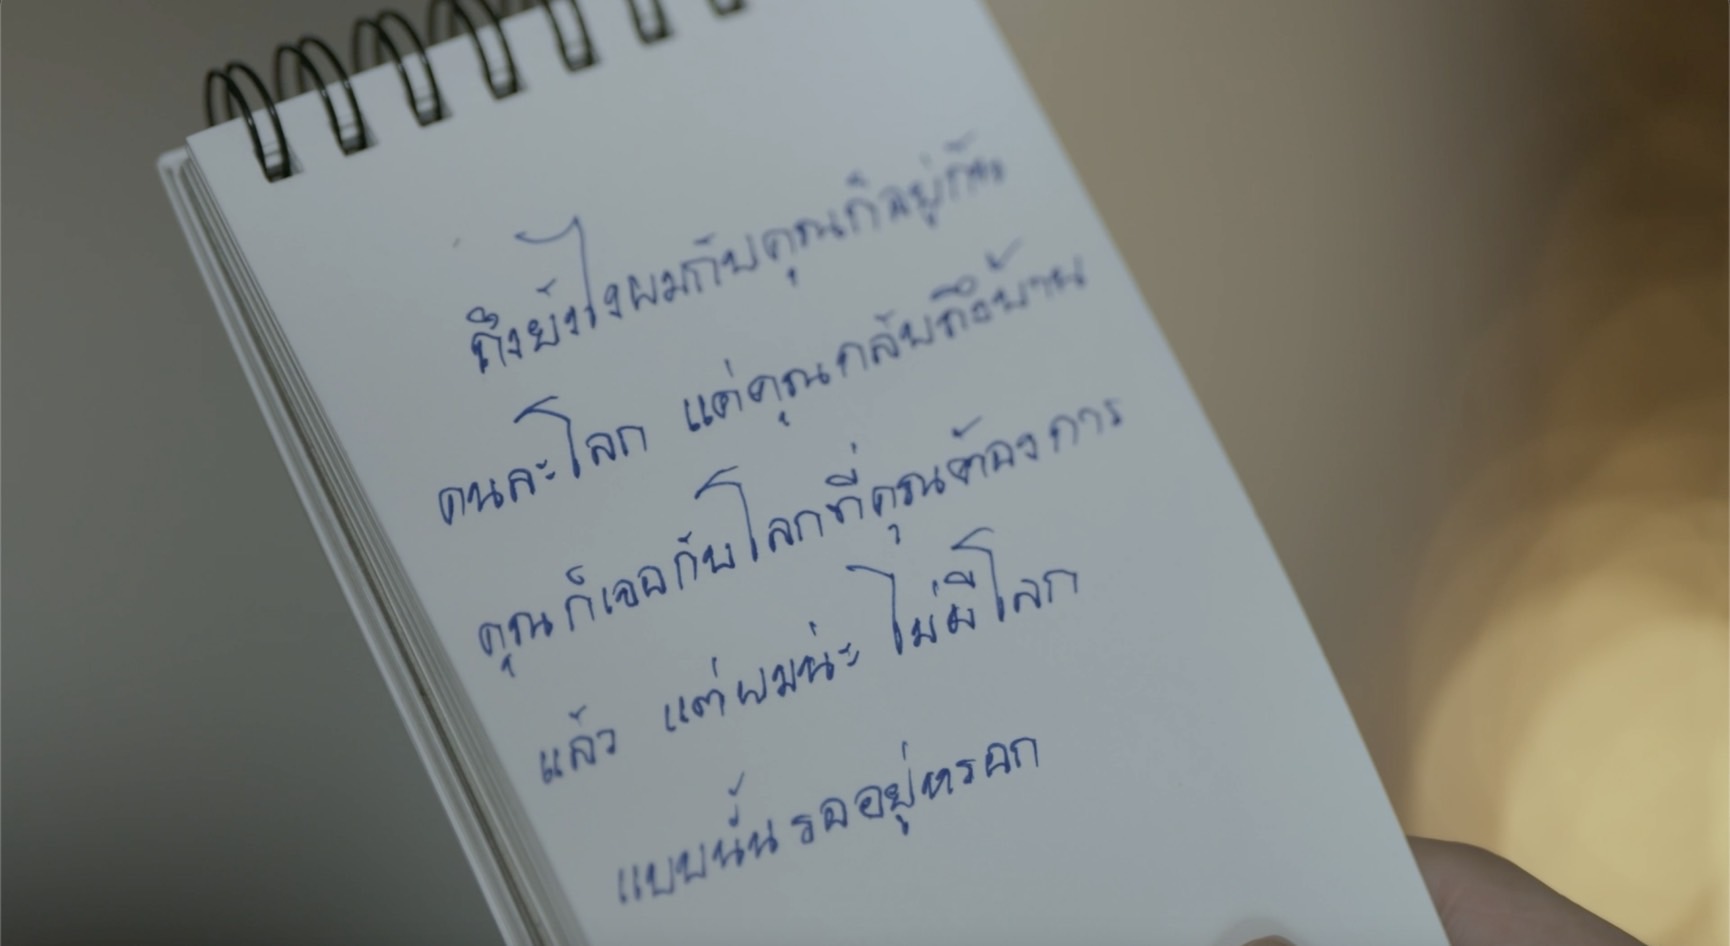 ถึงยังไงผมกับคุณก็อยู่กัน
คนละโลก แค่คุณกลับถึงบ้าน
คุณก็เจอกับโลกที่คุณต้องการ
แล้ว แต่ผมน่ะ ไม่มีโลก
แบบนั้นรออยู่หรอก